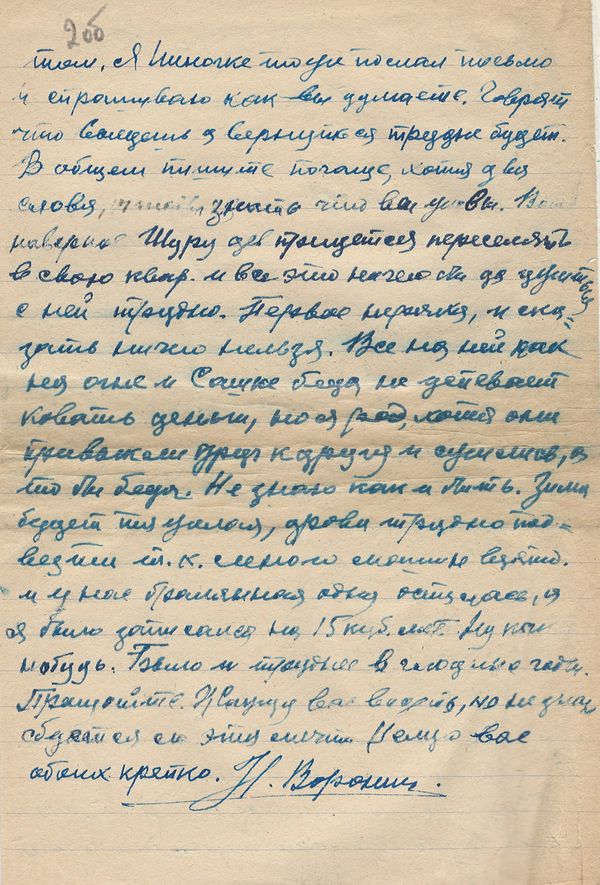 206
том. Я Ниночке тоже послал письмо
и спрашиваю как вы думаете. Говорят
что выедешь а вернуться трудно будет.
В общем пишите почаще, хотя два
слова, знать что вы живы. Вот
наверное Шуру придется переселять
в свою квар. и все это
с ней трудно. Первое неряха, и ска-
зать ничего нельзя. Все на ней как
на огне и Сашке беда не успевает
ковать деньги, но я рад, хотя они
привыкли друг к другу и сжились, а
то бы беда. Не знаю как и быть. Зима
будет тяжелая, дрова трудно под-
везти т.к. много машин взято.
и у нас одна осталась, а
я было записался на 15 куб. мет. Ну как
нибудь. Было и труднее в голодные годы.
Прощайте. Жажду вас видеть, но не знаю
сбудется ли эта мечта. Целую вас
обоих крепко. Н. Воронин.